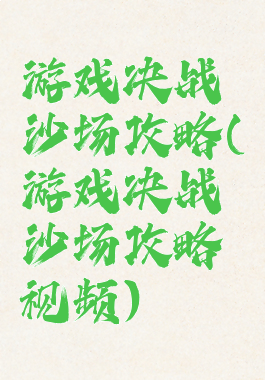 游戏决战
沙场攻略(
游戏决战
沙场攻略
视频)